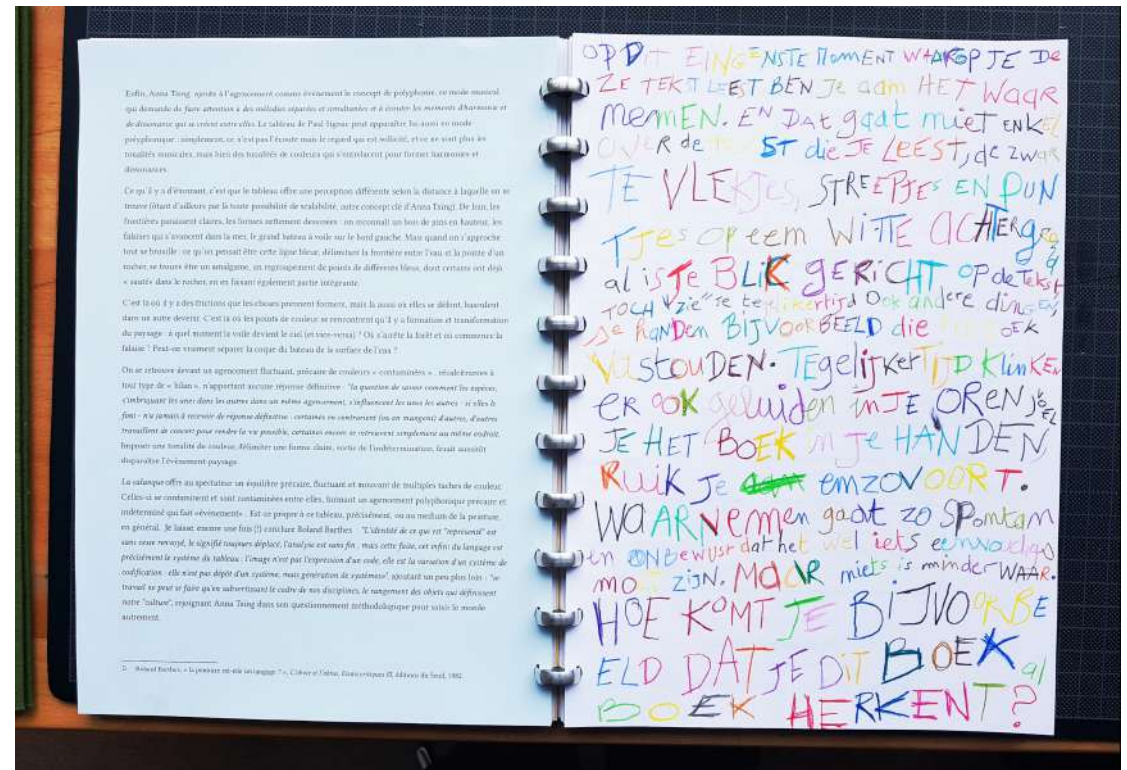 Enfin, Anna Tsing, ajoute à l'agencement comme évènement le concept de polyphonie, ce mode musical
qui demande de faire attention à des mélodies séparées et simultanées et à écouter les moments d'harmonie et
de dissonance qui se créent entre elles. Le tableau de Paul Signac peut apparaître lui aussi en mode
polyphonique : simplement, ce n'est pas l'écoute mais le regard qui est sollicité, et ce ne sont plus les
tonalités musicales, mais bien des tonalités de couleurs qui s'entrelacent pour former harmonies et
dissonances.
Ce qu'il y a d'étonnant, c'est que le tableau offre une perception différente selon la distance à laquelle on se
trouve (ôtant d'ailleurs par là toute possibilité de scalabilité, autre concept clé d'Anna Tsing). De loin, les
frontières paraissent claires, les formes nettement dessinées : on reconnaît un bois de pins en hauteur, les
falaises qui s'avancent dans la mer, le grand bateau à voile sur le bord gauche. Mais quand on s'approche
tout se brouille : ce qu'on pensait être cette ligne bleue, délimitant la frontière entre l'eau et la pointe d'un
rocher, se trouve être un amalgame, un regroupement de points de différents bleus, dont certains ont déjà
« sauté » dans le rocher, en en faisant également partie intégrante.
C'est là où il y a des frictions que les choses prennent forment, mais là aussi où elles se défont, basculent
dans un autre devenir. C'est là où les points de couleur se rencontrent qu'il y a formation et transformation
du paysage : à quel moment la voile devient le ciel (et vice-versa) ? Où s'arrête la forêt et où commence la
falaise ? Peut-on vraiment séparer la coque du bateau de la surface de l'eau ?
On se retrouve devant un agencement fluctuant, précaire de couleurs « contaminées », récalcitrantes à
tout type de « bilan », n'apportant aucune réponse définitive : "la question de savoir comment les espèces,
s'imbriquant les unes dans les autres dans un même agencement, s'influencent les unes les autres - si elles le
font - n'a jamais à recevoir de réponse définitive : certaines se contrarient (ou en mangent) d'autres, d'autres
travaillent de concert pour rendre la vie possible, certaines encore se retrouvent simplement au même endroit.
Imposer une tonalité de couleur, délimiter une forme claire, sortie de l'indétermination, ferait aussitôt
disparaître l'évènement-paysage.
La calanque offre au spectateur un équilibre précaire, fluctuant et mouvant de multiples taches de couleur.
Celles-ci se contaminent et sont contaminées entre elles, formant un agencement polyphonique précaire et
indéterminé qui fait «évènement» . Est-ce propre à ce tableau, précisément, ou au medium de la peinture,
en général. Je laisse encore une fois (!) conclure Roland Barthes : "L'identité de ce qui est "représenté" est
sans cesse renvoyé, le signifié toujours déplacé, l'analyse est sans fin ; mais cette fuite, cet infini du langage est
précisément le système du tableau : l'image n'est pas l'expression d'un code, elle est la variation d'un système de
codification : elle n'est pas dépôt d'un système, mais génération de systèmes", ajoutant un peu plus loin : "se
travail ne peut se faire qu'en subvertissant le cadre de nos disciplines, le rangement des objets qui définissent
notre "culture", rejoignant Anna Tsing dans son questionnement méthodologique pour saisir le monde
autrement.
Roland Barthes, « la peinture est-elle un langage ? », L'obvie et l'obtus, Essais critiques III, éditions du Seuil, 1982.
OP DIT EINGENSTE MOMENT WAAROP JE DE
ZE TEKST LEEST BEN JE aan HET WAAR
nemEN. EN DAt gaat niet ENKEL
OVER de ST die JE LEEST, de zwar
TE VLEKJES, STREEPJES EN PUN
TJES OP een WITTE ACHTERgro
al is JE BLIK GERICHT OP de Tekst
TOCH "zie" je tegelijkertijd OOK andere dingen,
je hanDen BIJVOORBEELD die OEK
VaSTOUDEN. TEgelijkerTIJD KlinKEN
ER OOK geluiden in JE OREN, VOEL
JE HET BOEK in je HANDEN,
RUIK JE enzovOORT.
WAARNemen gaat zo SPONtaan
en ONBEWUST dat het wel iets eenvoudigs
moet ZIJN. MAAR niets is minder WAAR.
HOE KOMT JE BIJVOORBE
ELD DAT JE DIT BOEK al
BOEK HERKENT?